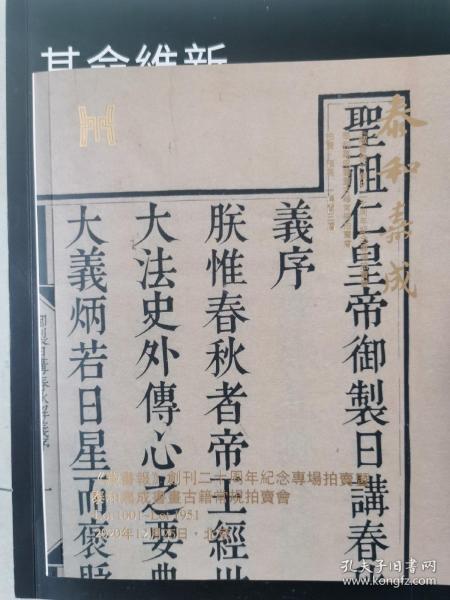 其命維新
泰和嘉成
聖祖仁皇帝御製日講春
義序
朕惟春秋者帝王經世
大法史外傳心之要典
大義炳若日星而褒貶
《藏書報》創刊二十周年紀念專場拍賣會
泰和嘉成書畫古籍常規拍賣會
Lot 1001-Lot 1951
2020年12月25日·北京
孔夫子旧书网
kongfz.com